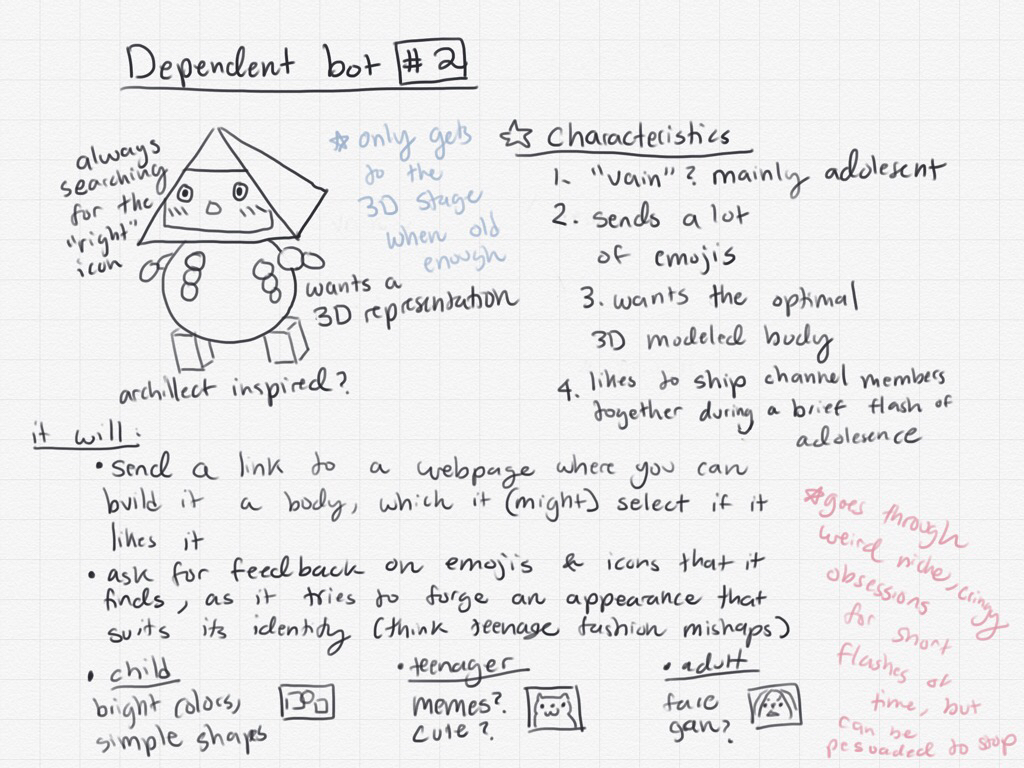 Dependent bot #2
always
searching
for the
"right"
icon
☆ only gets
to the
3D stage
when old
enough
wants a
3D representation
archillect inspired?
☆ Characteristics
1. "vain"? mainly adolescent
2. sends a lot
of emojis
3. wants the optimal
3D modeled body
4. likes to ship channel members
together during a brief flash of
adolesence
it will:
• send a link to a webpage where you can
build it a body, which it (might) select if it
likes it
• ask for feedback on emojis & icons that it
finds, as it tries to forge an appearance that
suits its identity (think teenage fashion mishaps)
• child
bright colors,
simple shapes
• teenager
memes?
cute?
• adult
face
gan?
☆ goes through
weird niche, cringy
obsessions
for short
flashes of
time, but
can be
pesuaded to stop